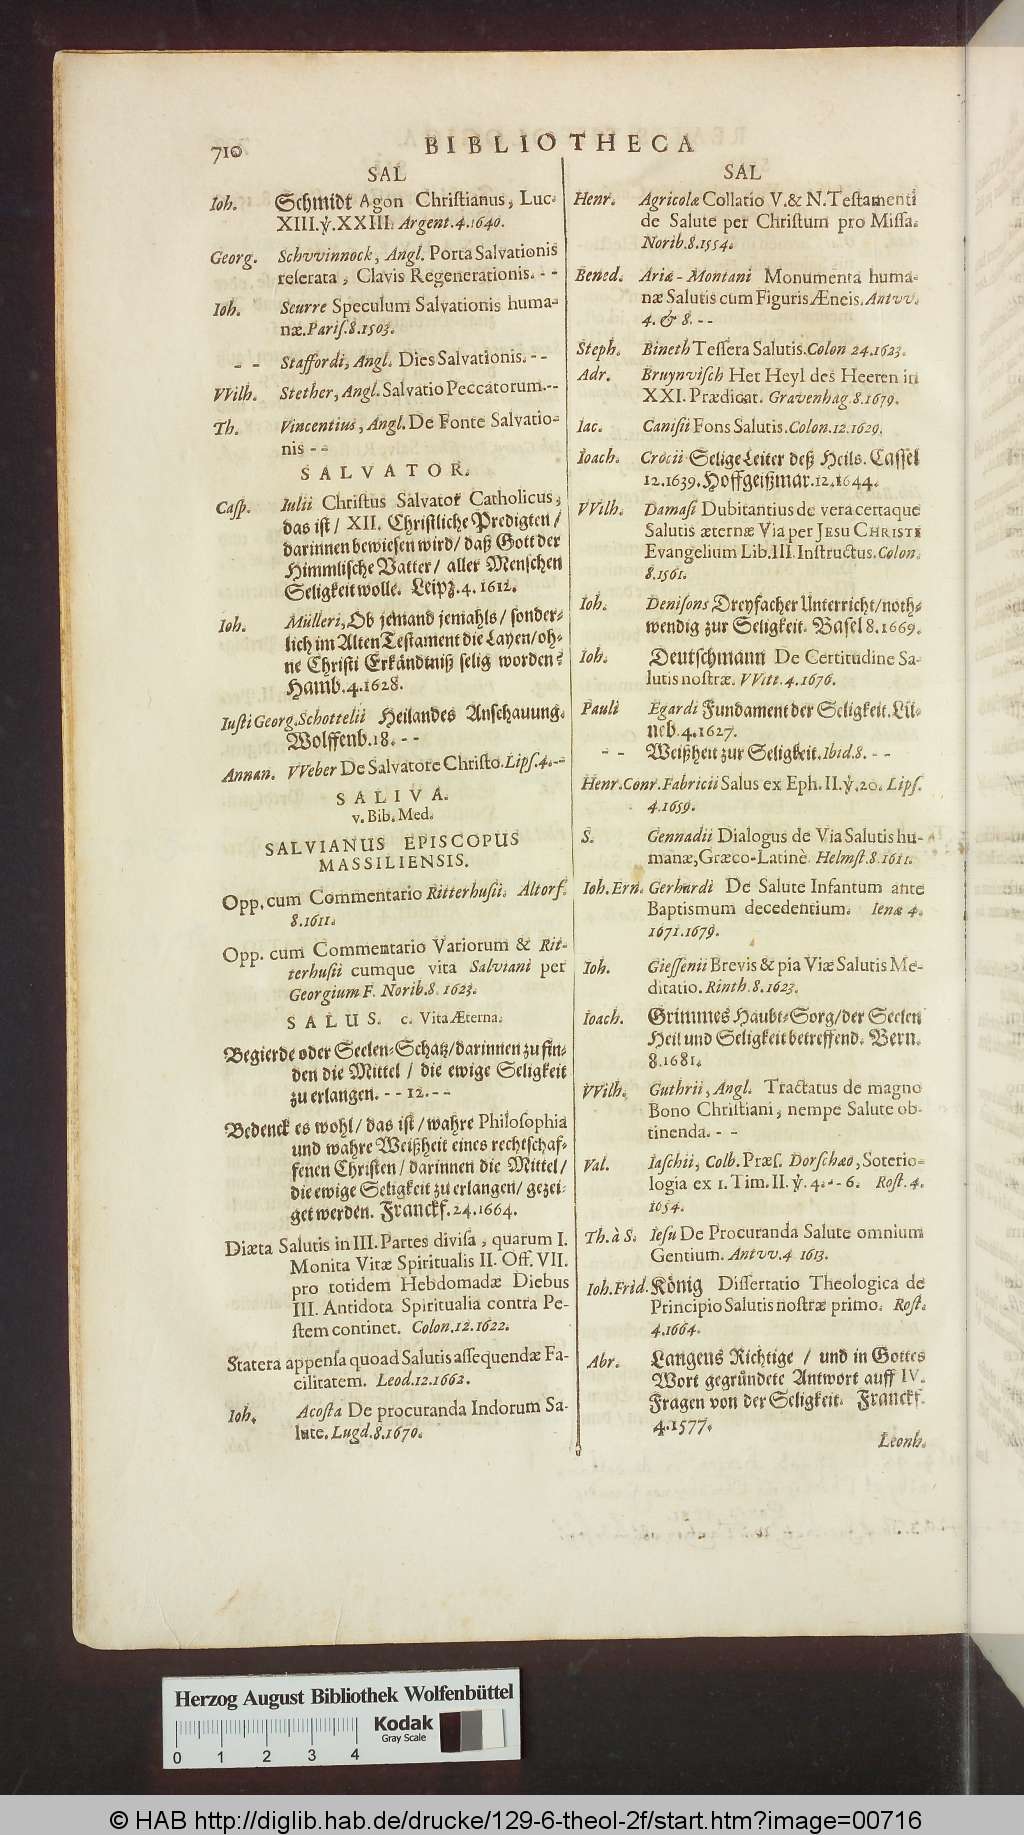 710
BIBLIOTHECA
SAL
Ioh. Schmidt Agon Christianus, Luc.
XIII. ℣. XXIII. Argent. 4. 1640.
Georg. Schvvinnock, Angl. Porta Salvationis
reserata, Clavis Regenerationis. - -
Ioh. Seurre Speculum Salvationis huma-
næ. Paris. 8. 1503.
- - Staffordi, Angl. Dies Salvationis. - -
VVilh. Stether, Angl. Salvatio Peccatorum. --
Th. Vincentius, Angl. De Fonte Salvatio-
nis - -
SALVATOR.
Casp. Iulii Christus Salvator Catholicus,
das ist / XII. Christliche Predigten /
darinnen bewiesen wird / daß Gott der
Himmlische Vatter / aller Menschen
Seligkeit wolle. Leipz. 4. 1612.
Ioh. Mülleri, Ob jemand jemahls / sonder-
lich im Alten Testament die Layen / oh-
ne Christi Erkändtniß selig worden?
Hamb. 4. 1628.
Iusti Georg. Schottelii Heilandes Anschauung.
Wolffenb. 18. - -
Annan. VVeber De Salvatore Christo. Lips. 4. --
SALIVA.
v. Bib. Med.
SALVIANUS EPISCOPUS
MASSILIENSIS.
Opp. cum Commentario Ritterhusii. Altorf.
8. 1611.
Opp. cum Commentario Variorum & Rit-
terhusii cumque vita Salviani per
Georgium F. Norib. 8. 1623.
SALUS. c. Vita Æterna.
Begierde oder Seelen-Schatz / darinnen zu fin-
den die Mittel / die ewige Seligkeit
zu erlangen. - - 12. - -
Bedenck es wohl / das ist / wahre Philosophia
und wahre Weißheit eines rechtschaf-
fenen Christen / darinnen die Mittel /
die ewige Seligkeit zu erlangen / gezei-
get werden. Franckf. 24. 1664.
Diæta Salutis in III. Partes divisa, quarum I.
Monita Vitæ Spiritualis II. Off. VII.
pro totidem Hebdomadæ Diebus
III. Antidota Spiritualia contra Pe-
stem continet. Colon. 12. 1622.
Statera appensa quoad Salutis assequendæ Fa-
cilitatem. Leod. 12. 1662.
Ioh. Acosta De procuranda Indorum Sa-
lute. Lugd. 8. 1670.
SAL
Henr. Agricolæ Collatio V. & N. Testamenti
de Salute per Christum pro Missa.
Norib. 8. 1554.
Bened. Ariæ - Montani Monumenta huma-
næ Salutis cum Figuris Æneis. Antvv.
4. & 8. - -
Steph. Bineth Tessera Salutis. Colon 24. 1623.
Adr. Bruynvisch Het Heyl des Heeren in
XXI. Prædicat. Gravenhag. 8. 1679.
Iac. Canisii Fons Salutis. Colon. 12. 1629.
Ioach. Crocii Selige Leiter deß Heils. Cassel
12. 1639. Hoffgeißmar. 12. 1644.
VVilh. Damasi Dubitantius de vera certaque
Salutis æternæ Via per JESU CHRISTI
Evangelium Lib. III. Instructus. Colon.
8. 1561.
Ioh. Denisons Dreyfacher Unterricht / noth-
wendig zur Seligkeit. Basel 8. 1669.
Ioh. Deutschmann De Certitudine Sa-
lutis nostræ. VVitt. 4. 1676.
Pauli Egardi Fundament der Seligkeit. Lü-
neb. 4. 1627.
- - Weißheit zur Seligkeit. Ibid. 8. - -
Henr. Conr. Fabricii Salus ex Eph. II. ℣. 20. Lips.
4. 1659.
S. Gennadii Dialogus de Via Salutis hu-
manæ, Græco-Latinè. Helmst. 8. 1611.
Ioh. Ern. Gerhardi De Salute Infantum ante
Baptismum decedentium. Ienæ 4.
1671. 1679.
Ioh. Giessenii Brevis & pia Viæ Salutis Me-
ditatio. Rinth. 8. 1623.
Ioach. Grimmes Haubt-Sorg / der Seelen
Heil und Seligkeit betreffend. Bern.
8. 1681.
VVilh. Guthrii, Angl. Tractatus de magno
Bono Christiani, nempe Salute ob-
tinenda. - -
Val. Iaschii, Colb. Præs. Dorschæo, Soterio-
logia ex 1. Tim. II. ℣. 4. -- 6. Rost. 4.
1654.
Th. à S. Iesu De Procuranda Salute omnium
Gentium. Antvv. 4 1613.
Ioh. Frid. König Dissertatio Theologica de
Principio Salutis nostræ primo. Rost.
4. 1664.
Abr. Langens Richtige / und in Gottes
Wort gegründete Antwort auff IV.
Fragen von der Seligkeit. Franckf.
4. 1577.
Leonh.
Herzog August Bibliothek Wolfenbüttel
Kodak
Gray Scale
0 1 2 3 4
© HAB http://diglib.hab.de/drucke/129-6-theol-2f/start.htm?image=00716